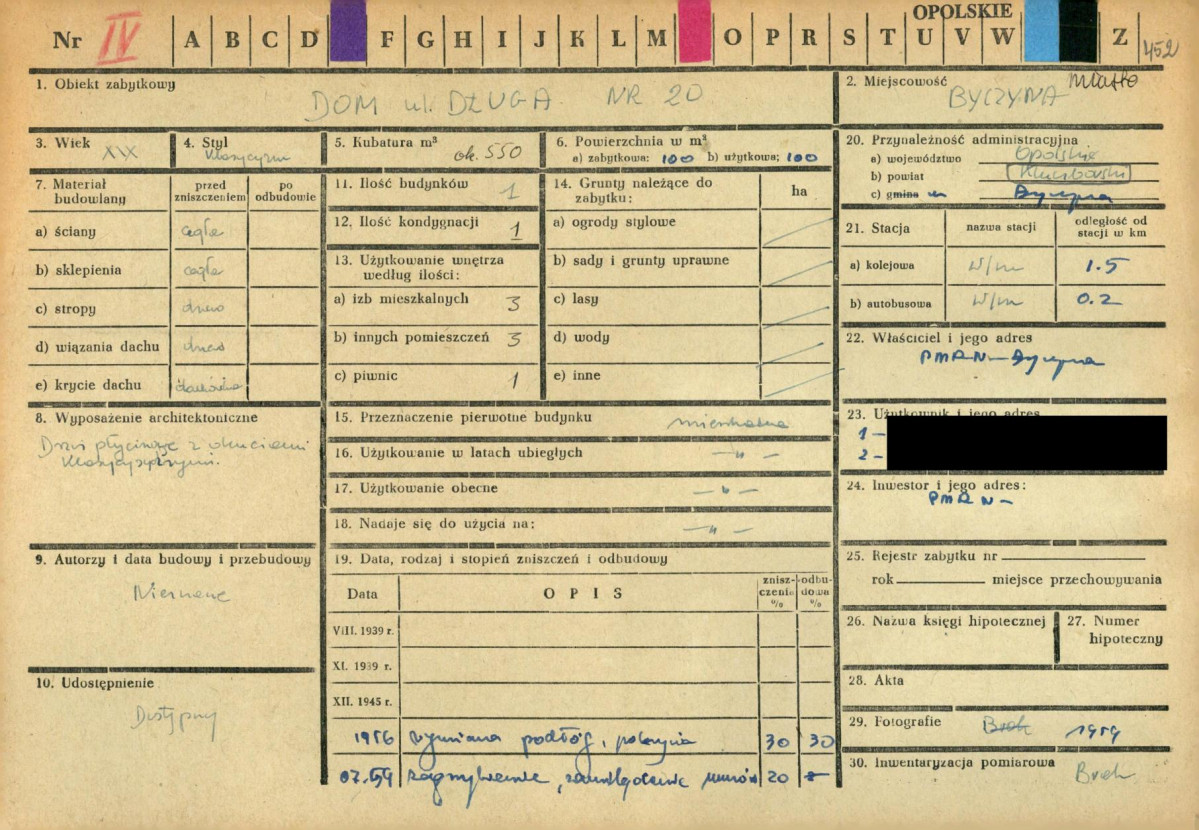 OPOLSKIE
Nr IV A B C D F G H I J K L M O P R S T U V W Z 452
1. Obiekt zabytkowy
DOM ul. DŁUGA NR 20
2. Miejscowość miasto
BYCZYNA
3. Wiek XIX
4. Styl Klasycyzm
5. Kubatura m³ ok. 550
6. Powierzchnia w m²
a) zabytkowa: 100 b) użytkowa; 100
20. Przynależność administracyjna
a) województwo Opolskie
b) powiat Kluczborski
c) gmina m Byczyna
7. Materiał budowlany
przed zniszczeniem
po odbudowie
a) ściany cegła
b) sklepienia cegła
c) stropy drewno
d) wiązania dachu drewno
e) krycie dachu dachówka
11. Ilość budynków 1
12. Ilość kondygnacji 1
13. Użytkowanie wnętrza według ilości:
a) izb mieszkalnych 3
b) innych pomieszczeń 3
c) piwnic 1
14. Grunty należące do zabytku:
ha
a) ogrody stylowe
b) sady i grunty uprawne
c) lasy
d) wody
e) inne
21. Stacja
nazwa stacji
odległość od stacji w km
a) kolejowa w/m 1.5
b) autobusowa w/m 0.2
22. Właściciel i jego adres
PMRN – Byczyna
8. Wyposażenie architektoniczne
Drzwi płycinowe z okuciami
klasycystycznymi.
15. Przeznaczenie pierwotne budynku mieszkalne
16. Użytkowanie w latach ubiegłych – " –
17. Użytkowanie obecne – " –
18. Nadaje się do użycia na: – " –
23. Użytkownik i jego adres
1 –
2 –
24. Inwestor i jego adres:
PMRN –
9. Autorzy i data budowy i przebudowy
Nieznane
10. Udostępnienie
Dostępny
19. Data, rodzaj i stopień zniszczeń i odbudowy
Data OPIS znisz-czenia % odbu-dowa %
VIII. 1939 r.
XI. 1939 r.
XII. 1945 r.
1956 wymiana podłóg, pokrycia 30 30
07.59 zagrzybienie, zawilgocenie murów 20 –
25. Rejestr zabytku nr
rok miejsce przechowywania
26. Nazwa księgi hipotecznej
27. Numer hipoteczny
28. Akta
29. Fotografie Brak 1959
30. Inwentaryzacja pomiarowa Brak